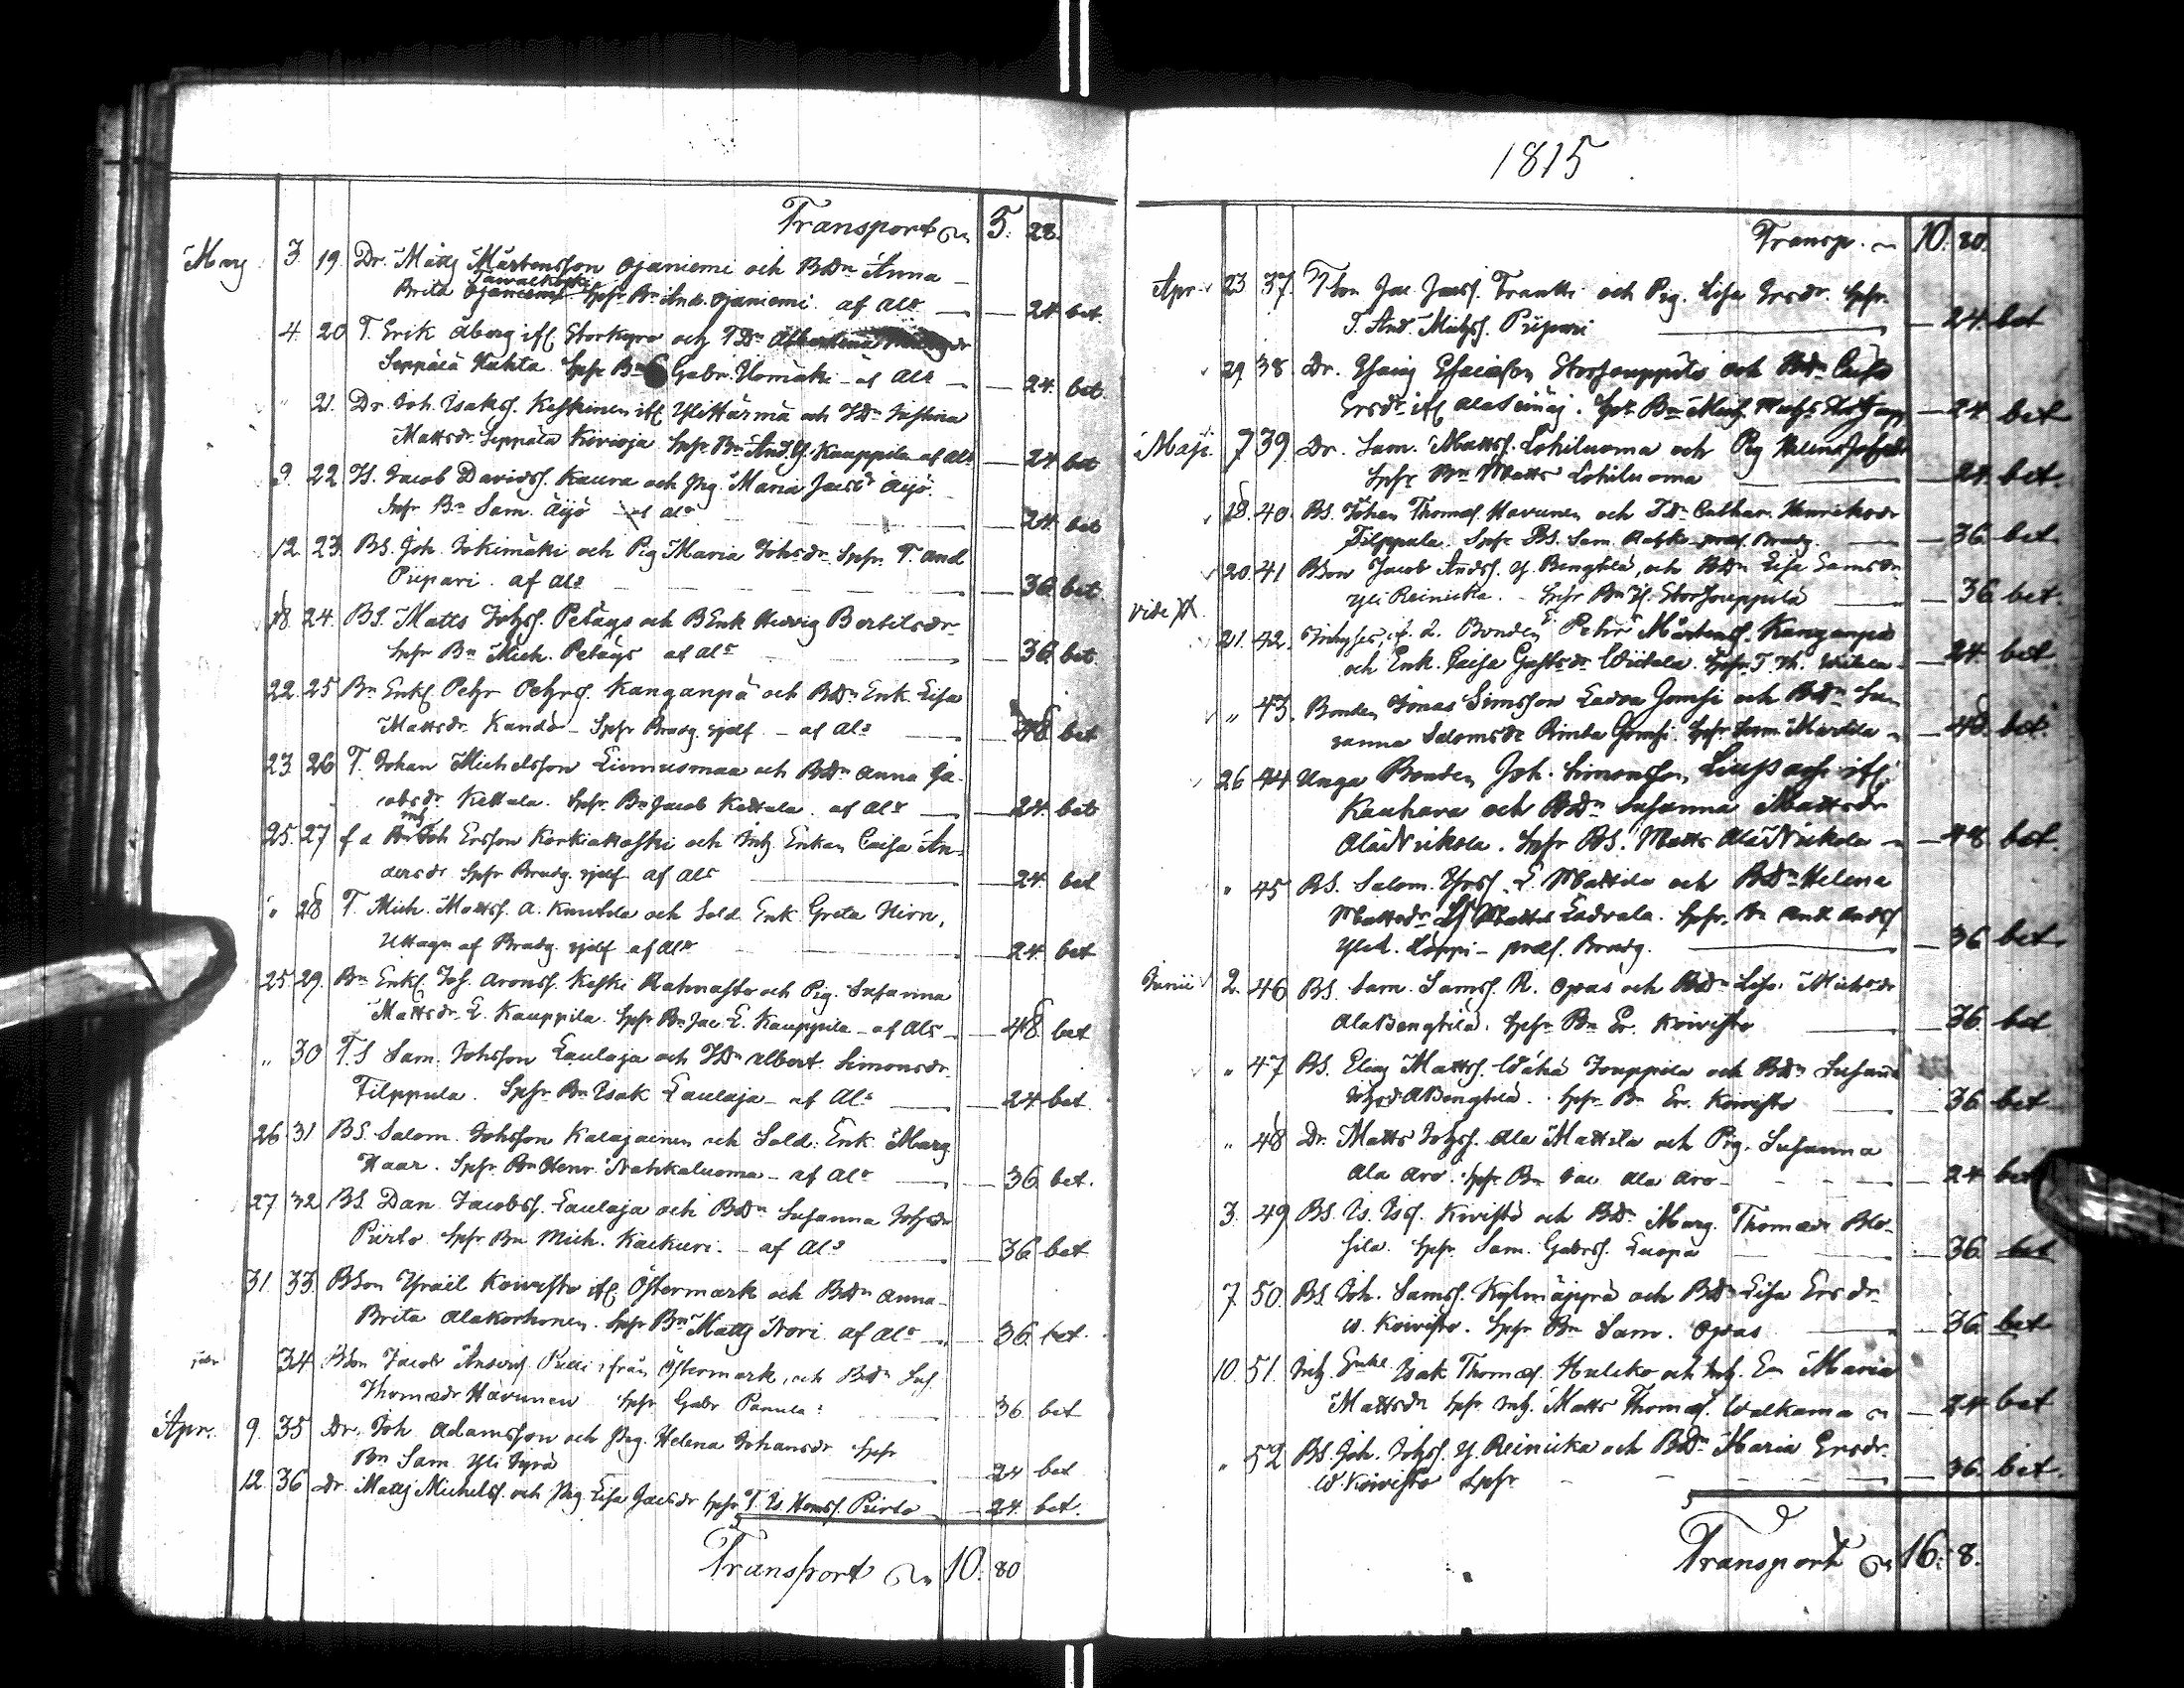 Transport 5. 28.
Marz 3. 19. Dr. Matts Mårtensson Ojaniemi och BDn Anna
Brita Ojaniemi Spfr Bn And. Ojaniemi af Als — 24 bet.
4. 20 T. Erik Åberg ifr. Storkyro och TDn
Seppälä Huhta. Spfr Bn Gabr. Uomäki af Als — 24. bet.
" 21. Dr. Joh. Isakss. Keskinen ifr Ylihärmä och TDn Justina
Mattsdr Seppälä Kivioja Spfr Bn And. Y. Kauppila af Als — 24 bet
9. 22 Is. Jacob Davidss. Kaura och Pig. Maria Jacsdr Äijö
Spfr Bn Sam. Äijö af Als — 24. bet
12. 23. BS. Joh. Jokimäki och Pig Maria Johsdr Spfr. T. And
Piipari. af Als — 36 bet.
18. 24. BS. Matts Johss. Peläys och BEnk Hedvig Bertilsdr
Spfr Bn Mich. Peläys af Als — 36. bet.
22. 25 Bn Enkl. Pehr Pehrss. Kanganpä och BDn Enk. Lisa
Mattsdr. Kandò - Spfr Brudg. sjelf - af Als — 48 bet
23. 26 T. Johan Michelsson Linnusmaa och BDn Anna Ja-
cobsdr. Kettula. Spfr. Bn Jacob Kettula. af Als — 24. bet
25. 27 f d Bn Joh Ersson Korkiakoski och Inh. Enkan Caisa An-
dersdr Spfr Brudg. sjelf af Als — 24. bet
" 28 T. Mich. Mattss. A. Knuutila och Sold. Enk. Greta Hirn,
Uttagn af Brudg. sjelf af Als — 24. bet
25. 29. Bn Enkl. Joh. Aronss. Keski Rahnasto och Pig. Susanna
Mattsdr. L. Kauppila. Spfr Bn Jac L. Kauppila - af Als — 48. bet
" 30 T.S Sam. Johsson Laulaja och TDn Albert. Simonsdr.
Filppula. Spfr Bn Isak Laulaja - af Als — 24 bet.
26 31 BS. Salom. Johsson Kalajainen och Sold. Enk. Marg
Haar. Spfr. Bn Henr. Nahkaluoma - af Als — 36. bet.
27 32 BS. Dan. Jacobss. Laulaja och BDn Susanna Johsdr
Piirto Spfr Bn Mich. Kaukuri. - af Als — 36. bet
31. 33. BSon Israel Koivisto ifr. Östermark och BDn Anna
Brita Alakorhonen. Spfr Bn Matts Nori af Als — 36. bet.
34 BSon Jacob ifrån Östermark, och BDn Sus.
Thomædr Havunen Spfr Gabr Panula — 36 bet
Apr. 9. 35 Dr. Joh Adamsson och Pig. Helena Johansdr Spfr
Bn Sam Yli Jyrä — 24 bet
12. 36 Dr. Matts Michelss. och Pig Lisa Jacsdr Spfr T. Is Piirto — 24. bet.
Transport 10. 80
1815
Transp. 10. 80.
Apr. 23 37. TSon Jac. Jacss. Frantti och Pig. Lisa Ersdr. Spfr.
T. And. Michss. Piipari — 24. bet
29. 38 Dr. Esaias Esaiasson Storjouppila och BDn Caisa
Ersdr ifr Alaseinäj. Spfr Bn Mich. — 24. bet
Maji. 7 39. Dr. Sam. Mattss. Lohiluoma och Pig
Spfr Bn Matts Lohiluoma — 24. bet.
18. 40. BS. Johan Thomæs. Havunen och TDn Cathar. Henriksdr
Filppula. Spfr BS. Sam. præs. Brudg. — 36. bet.
20 41 BSon Jacob Andss. Y. Bengtilä, och BDn Lisa Samsdr
Yli Reinikka. Spfr Bn Is. Storjouppila — 36 bet.
vide
21. 42. Bonden Pehr Mårtenss. Kanganpä
och Enk. Caisa Gustsdr Wiitala. Spfr. T. — 24. bet
" 43. Bonden Jonas Simsson Ladva Gomsi och BDn Su-
sanna Salomsdr Rinta Gomsi. Spfr Martila — 48. bet.
26 44 Unga Bonden Joh. Simonsson ifr.
Kauhava och BDn Susanna Mattsdr
Ala Nikola. Spfr BS. Matts Ala Nikola — 48. bet.
" 45 BS. Salom. L. Mattila och BDn Helena
Mattsdr Ladvala. Spfr. Bn And. Andss
Loppi - præs. Brudg. — 36 bet.
Junii 2. 46 BS. Sam. Samss. R. Opas och BDn Lisa Michsdr
Ala Bengtilä. Spfr Bn Er. Koivisto — 36. bet
" 47 BS. Elias Mattss. Wähä Jouppila och BDn Susanna
Johsdr A Bengtilä. Spfr Bn Er. Koivisto — 36 bet
" 48 Dr. Matts Johss. Ala Mattila och Pig. Susanna
Ala Aro. Spfr Bn Jac Ala Aro — 24 bet
3. 49 BS. Is. Iss. Kivistö och BDn Marg. Thomædr Blo-
sila. Spfr Sam. Gabrss. Luopa — 36. bet
7. 50. BS. Joh. Samss. Kylmäjyrä och BDn Lisa Ersdr
W. Koivisto. Spfr Bn Sam. Opas — 36. bet
10. 51. Inh. Enkl. Isak Thomæs. Hulkko och Inh. En Maria
Mattsdr Spfr Inh. Matts Thomæs. Walkama — 24. bet
" 52 BS. Joh. Johss. Y. Reinikka och BDn Maria Ersdr.
W. Koivisto Spfr — 36. bet.
Transport 16. 8.